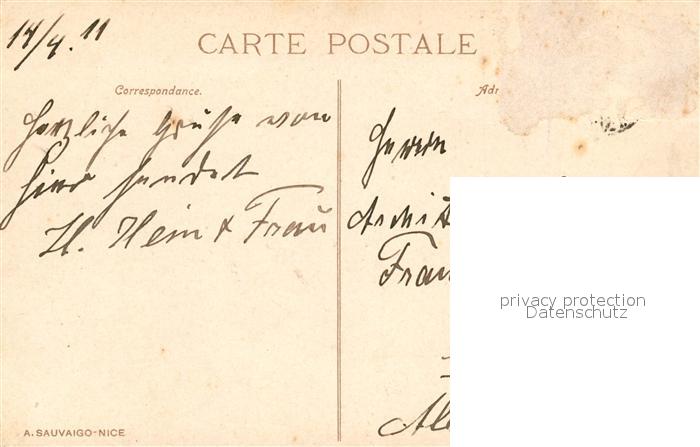 14/4.11
CARTE POSTALE
Correspondance.
Herzliche Grüße von
hier sendet
H. Hein & Frau
Herrn
A. SAUVAIGO-NICE
privacy protection
Datenschutz